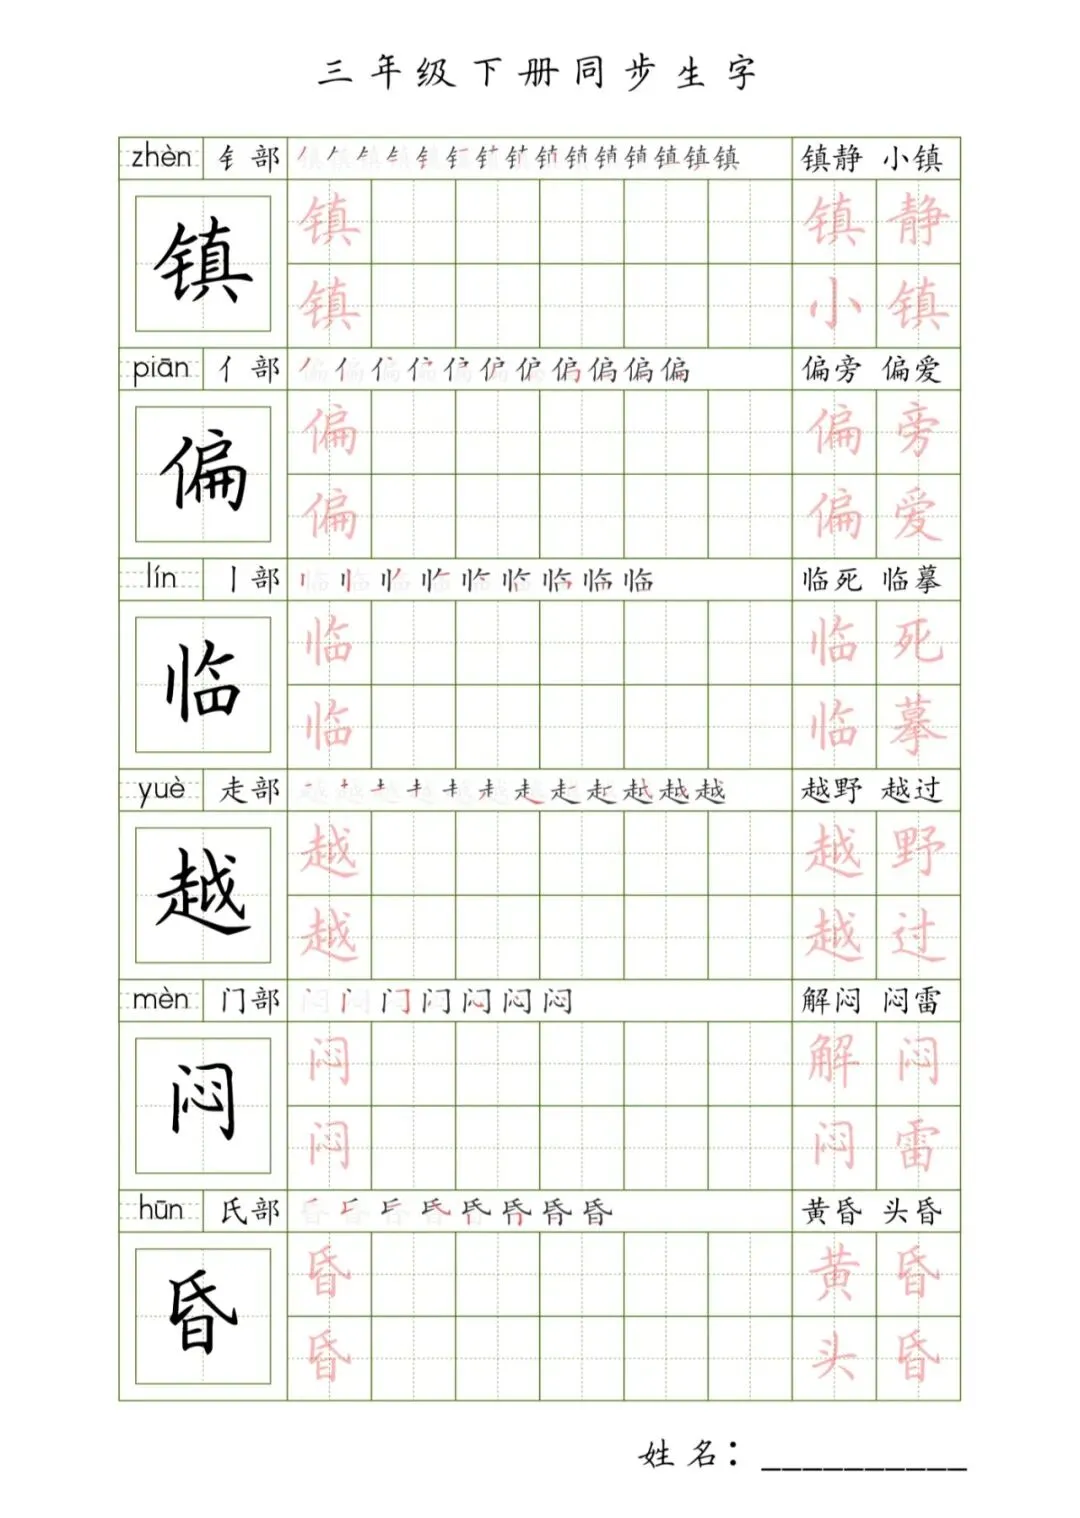 三年级下册同步生字
zhèn 钅部 镇静 小镇
镇 镇 镇静
镇 小镇
piān 亻部 偏旁 偏爱
偏 偏 偏旁
偏 偏爱
lín 丨部 临死 临摹
临 临 临死
临 临摹
yuè 走部 越野 越过
越 越 越野
越 越过
mèn 门部 解闷 闷雷
闷 闷 解闷
闷 闷雷
hūn 氏部 黄昏 头昏
昏 昏 黄昏
昏 头昏
姓名：__________